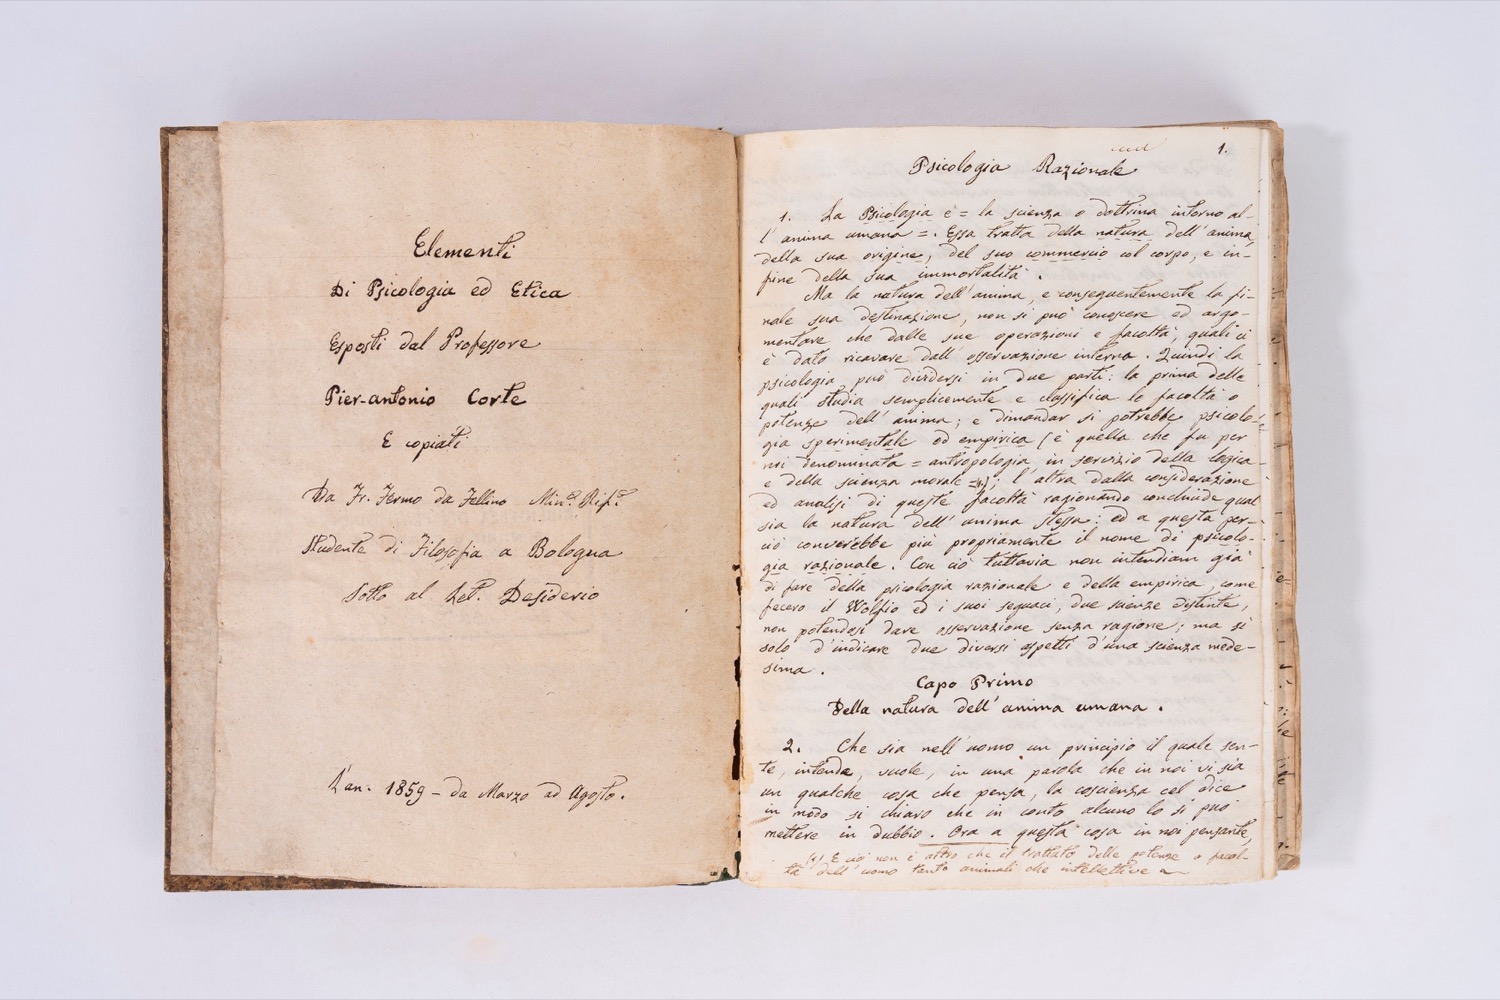 Elementi
Di Psicologia ed Etica
Esposti dal Professore
Pier-antonio Corte
E copiati
Da Fr. Fermo da Fellino Min.e Rif.o
Studente di Filosofia a Bologna
Sotto al Let. Desiderio
L'an. 1859 – da Marzo ad Agosto.
1.
Psicologia Razionale
1. La Psicologia è = la scienza o dottrina intorno al-
l'anima umana =. Essa tratta della natura dell'anima,
della sua origine, del suo commercio col corpo, e in-
fine della sua immortalità.
Ma la natura dell'anima, e conseguentemente la fi-
nale sua destinazione, non si può conoscere ed argo-
mentare che dalle sue operazioni e facoltà, quali ci
è dato ricavare dall'osservazione interna. Quindi la
psicologia può dividersi in due parti: la prima delle
quali studia semplicemente e classifica le facoltà o
potenze dell'anima; e dimandar si potrebbe psicolo-
gia sperimentale od empirica (è quella che fu per
noi denominata = antropologia in servizio della logica
e della scienza morale =(1)); l'altra dalla considerazione
ed analisi di queste facoltà razionando conchiude qual
sia la natura dell'anima stessa: ed a questa per-
ciò converebbe più propriamente il nome di psicolo-
gia razionale. Con ciò tuttavia non intendiam già
di fare della psicologia razionale e della empirica, come
fecero il Wolfio ed i suoi seguaci, due scienze distinte,
non potendosi dare osservazione senza ragione; ma sì
solo d'indicare due diversi aspetti d'una scienza mede-
sima.
Capo Primo
Della natura dell'anima umana.
2. Che sia nell'uomo un principio il quale sen-
te, intende, vuole, in una parola che in noi vi sia
un qualche cosa che pensa, la coscienza cel dice
in modo sì chiaro che in conto alcuno lo si può
mettere in dubbio. Ora a questa cosa in noi pensante,
(1) E ciò non è altro che il trattato delle potenze o facol-
tà dell'uomo tanto animali che intellettive